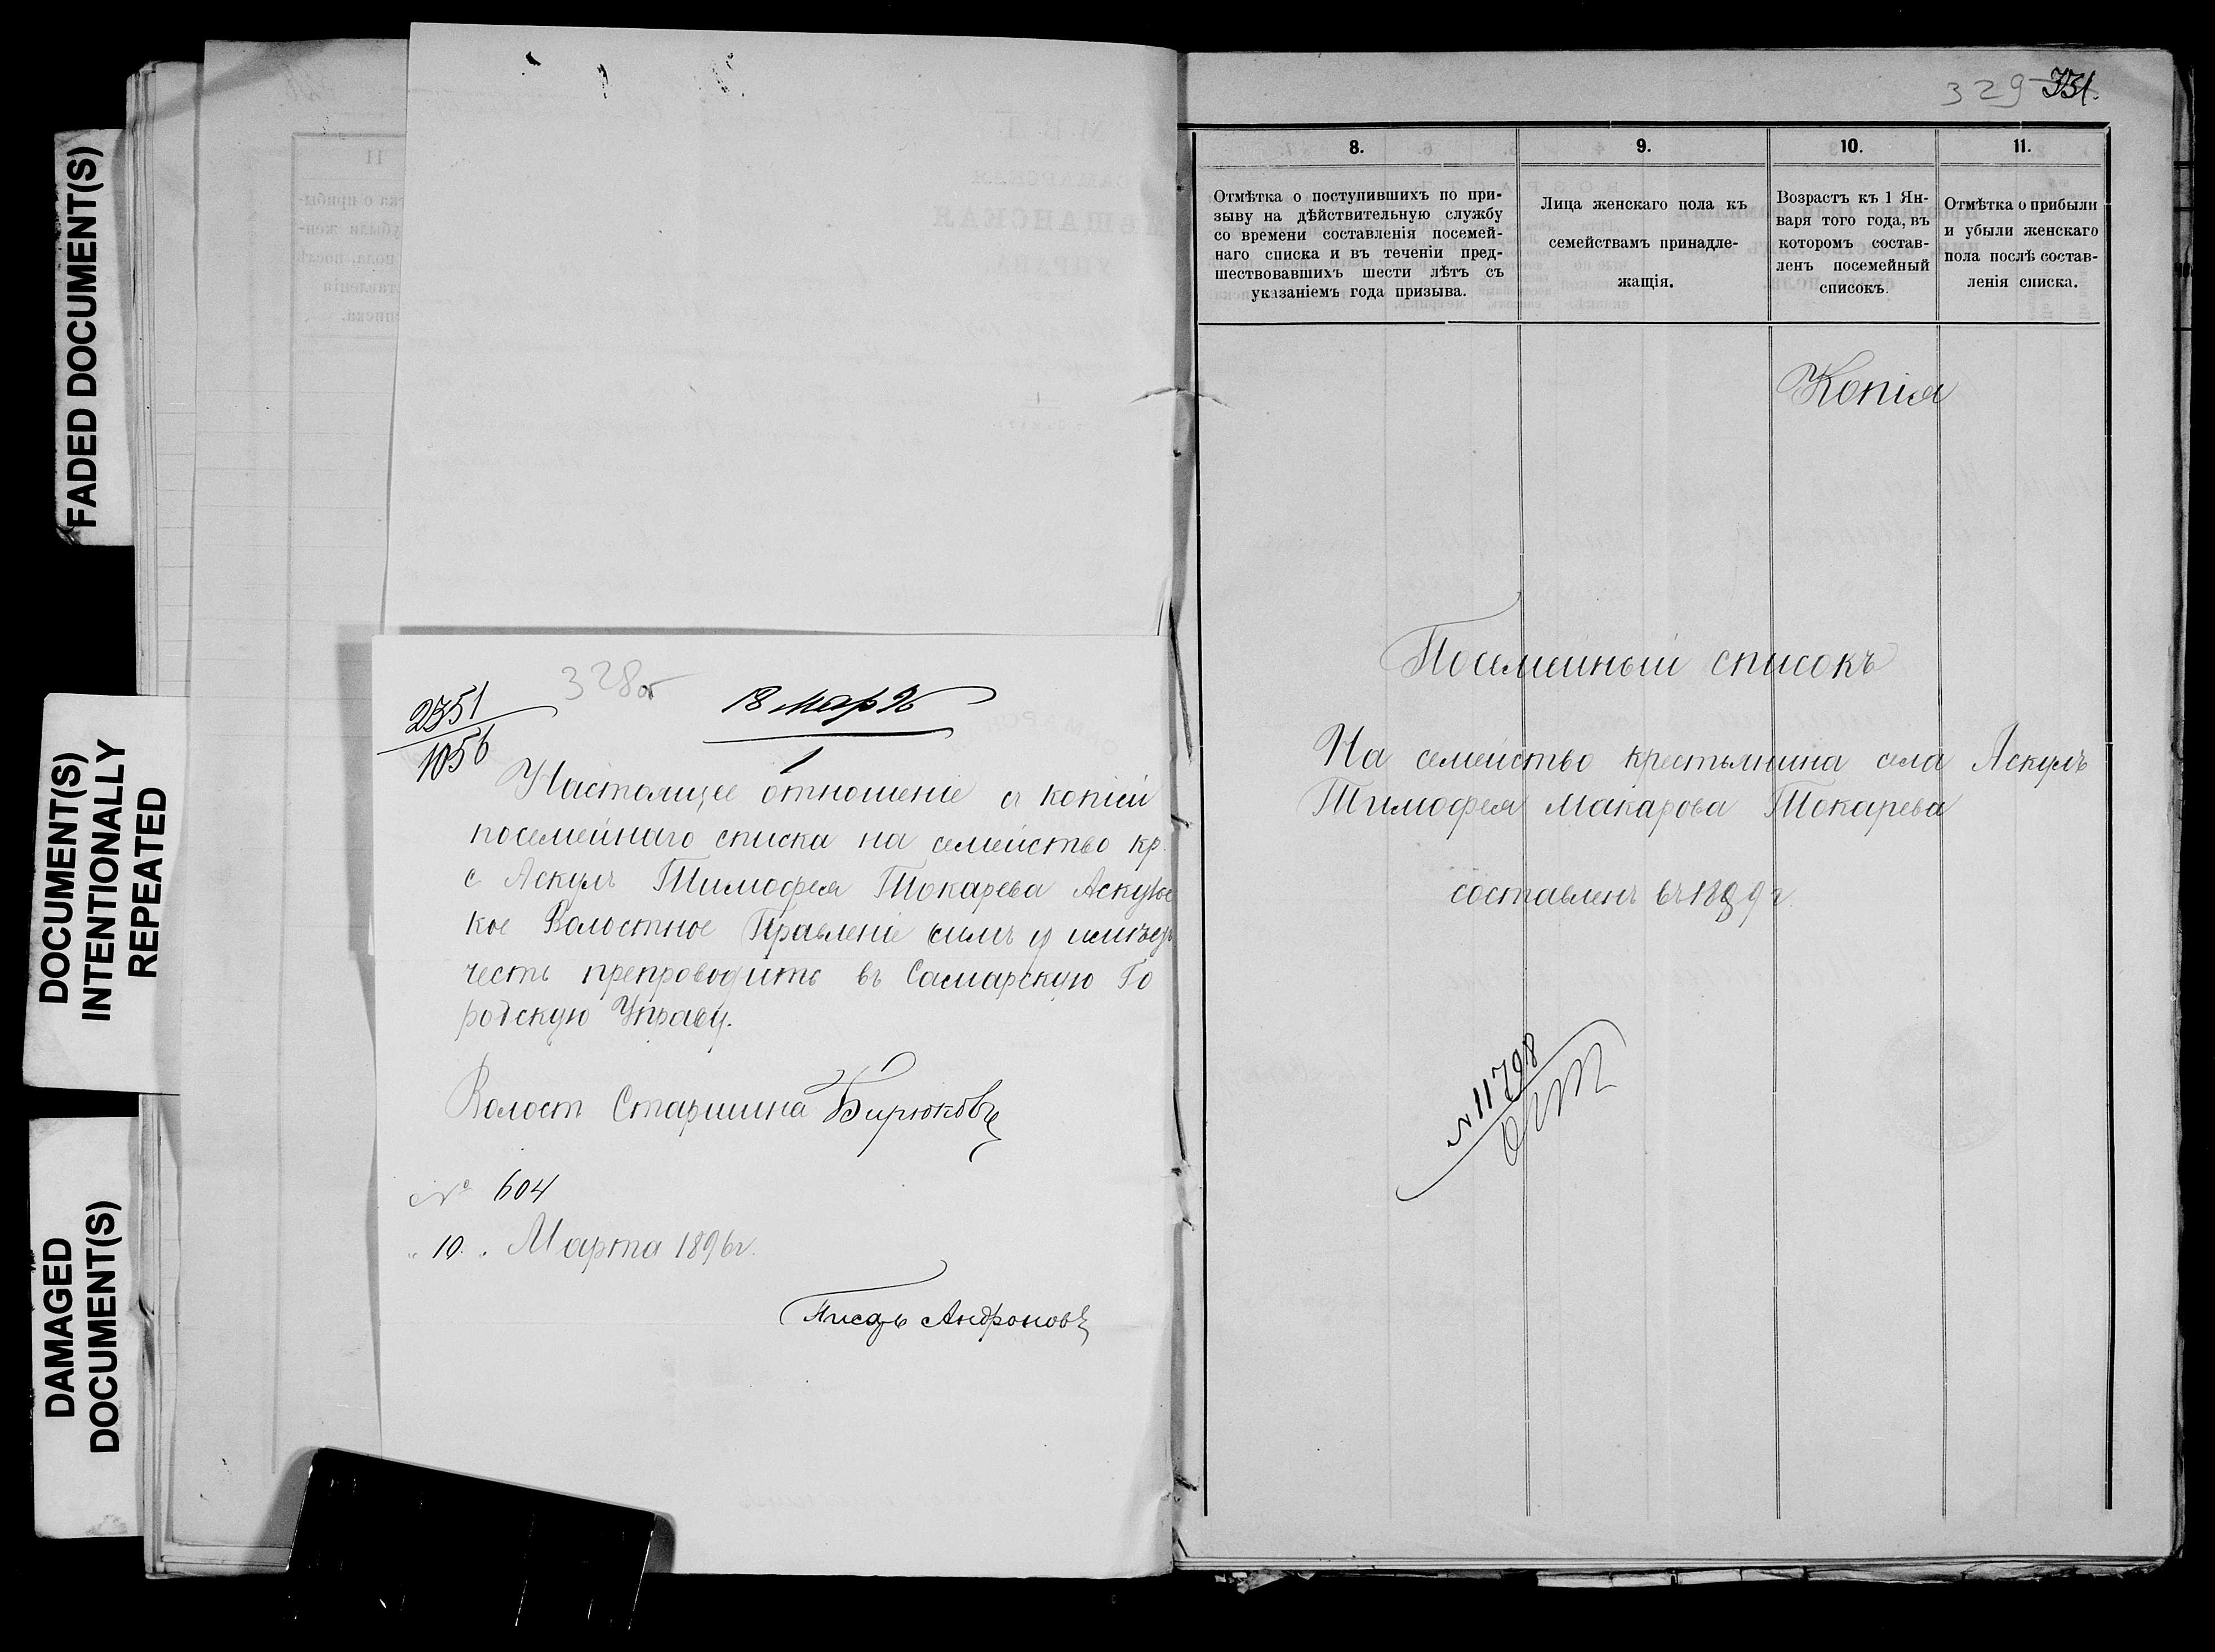 FADED DOCUMENT(S)
DOCUMENT(S)
INTENTIONALLY
REPEATED
DAMAGED
DOCUMENT(S)
328 об
2351
1056
18 Мар 96
1
Настоящее отношеніе съ копіей
посемейнаго списка на семейство кр.
с. Аскулъ Тимофея Токарева Аскульс
кое Волостное Правленіе симъ имѣетъ
честь препроводить въ Самарскую Го
родскую Управу.
Волост Старшина Бирюковъ
№ 604
"10" Марта 1896 г.
Писарь Андроновъ
329 331.
8.
Отмѣтка о поступившихъ по при-
зыву на дѣйствительную службу
со времени составленія посемей-
наго списка и въ теченіи пред-
шествовавшихъ шести лѣтъ съ
указаніемъ года призыва.
9.
Лица женскаго пола къ
семействамъ принадле-
жащія.
10.
Возрастъ къ 1 Ян-
варя того года, въ
которомъ состав-
ленъ посемейный
списокъ.
11.
Отмѣтка о прибыли
и убыли женскаго
пола послѣ состав-
ленія списка.
Копія
Посемейный списокъ
На семейство крестьянина села Аскулъ
Тимофея Макарова Токарева
составленъ въ 1889 г.
№ 11798